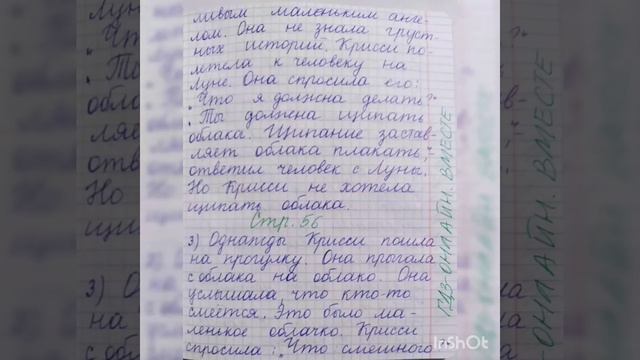 ливым маленьким анге-
лом. Она не знала груст-
ных историй. Крисси по-
летела к человеку на
Луне. Она спросила его:
"Что я должна делать?"
"Ты должна щипать
облака. Щипание застав-
ляет облака плакать,"
ответил человек с Луны.
Но Крисси не хотела
щипать облака.
Стр. 56
3) Однажды Крисси пошла
на прогулку. Она прыгала
с облака на облако. Она
услышала, что кто-то
смеётся. Это было ма-
ленькое облачко. Крисси
спросила: "Что смешного
ГДЗ-ОНЛАЙН. ВМЕСТЕ
InShot